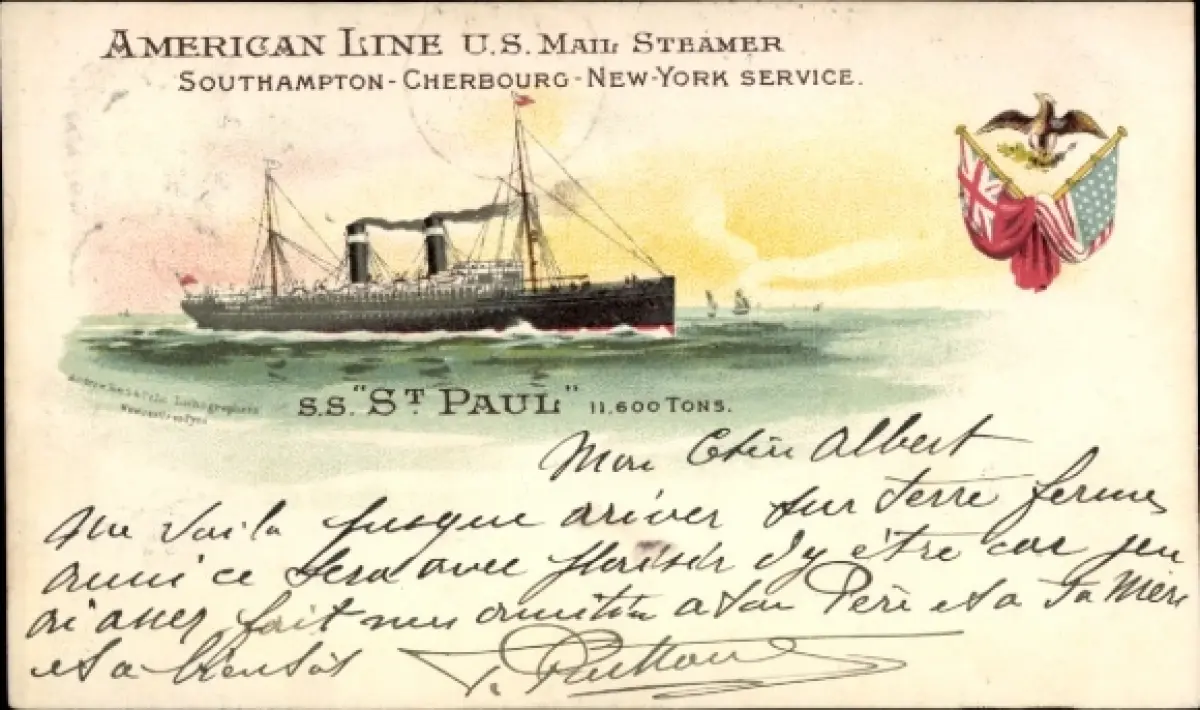 AMERICAN LINE U.S. MAIL STEAMER
SOUTHAMPTON-CHERBOURG-NEW-YORK SERVICE.
Lithographers
S.S. "ST PAUL" 11.600 TONS.
Mon Cher Albert
Me voila jusque ariver sur terre ferme
aussi ce sera avec plaisir d'y être car j'en
ai assez fait mes amitiés a ton Père et a ta Mère
et a bientôt